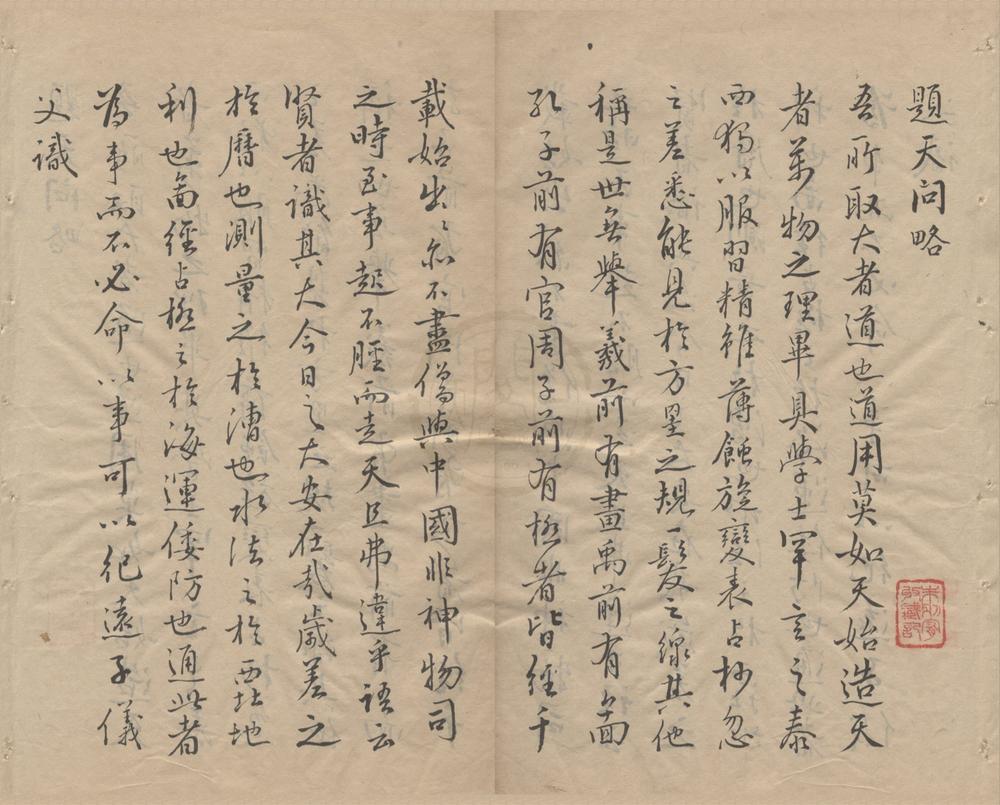 題天問略
吾所取大者道也道用莫如天始造天
者萬物之理畢具學士罕言之泰
西獨以服習精雖薄蝕旋變表占杪忽
之差悉能見於方罫之規一髮之線其他
稱是世無舉羲前有畫禹前有圖
孔子前有官周子前有極者皆經千
載始出〻亦不盡僑與中國非神物司
之時至事起不脛而走天且弗違乎語云
賢者識其大今日之大安在哉歲差之
於曆也測量之於漕也水法之於西北地
利也圖經占極之於海運倭防也通此者
為事而不必命以事可以紀遠子儀
父識
朱別宥收藏記